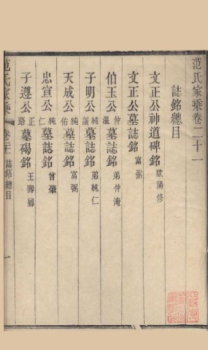 范氏家乘卷二十一
誌銘總目
文正公神道碑銘 歐陽修
文正公墓誌銘 富弼
伯玉公 仲溫 墓誌銘 弟仲淹
子明公 純祐 墓誌銘 富弼
天成公 純誠 墓誌銘 弟純仁
忠宣公 純仁 墓誌銘 曾肇
子遵公 正路 墓碣銘
范氏家乘 卷二十一 誌銘總目 一